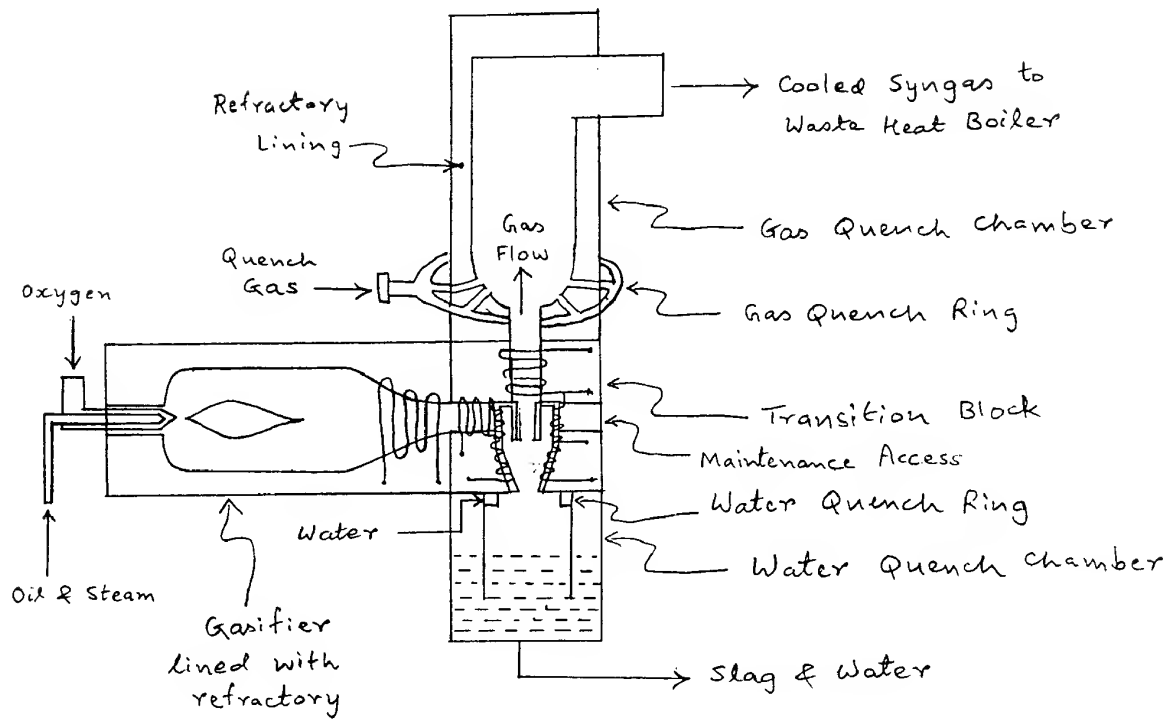 Refractory
Lining
Cooled Syngas to
Waste Heat Boiler
Gas
Flow
Gas Quench Chamber
Quench
Gas
Oxygen
Gas Quench Ring
Transition Block
Maintenance Access
Water Quench Ring
Water
Water Quench Chamber
Oil & Steam
Gasifier
lined with
refractory
Slag & Water